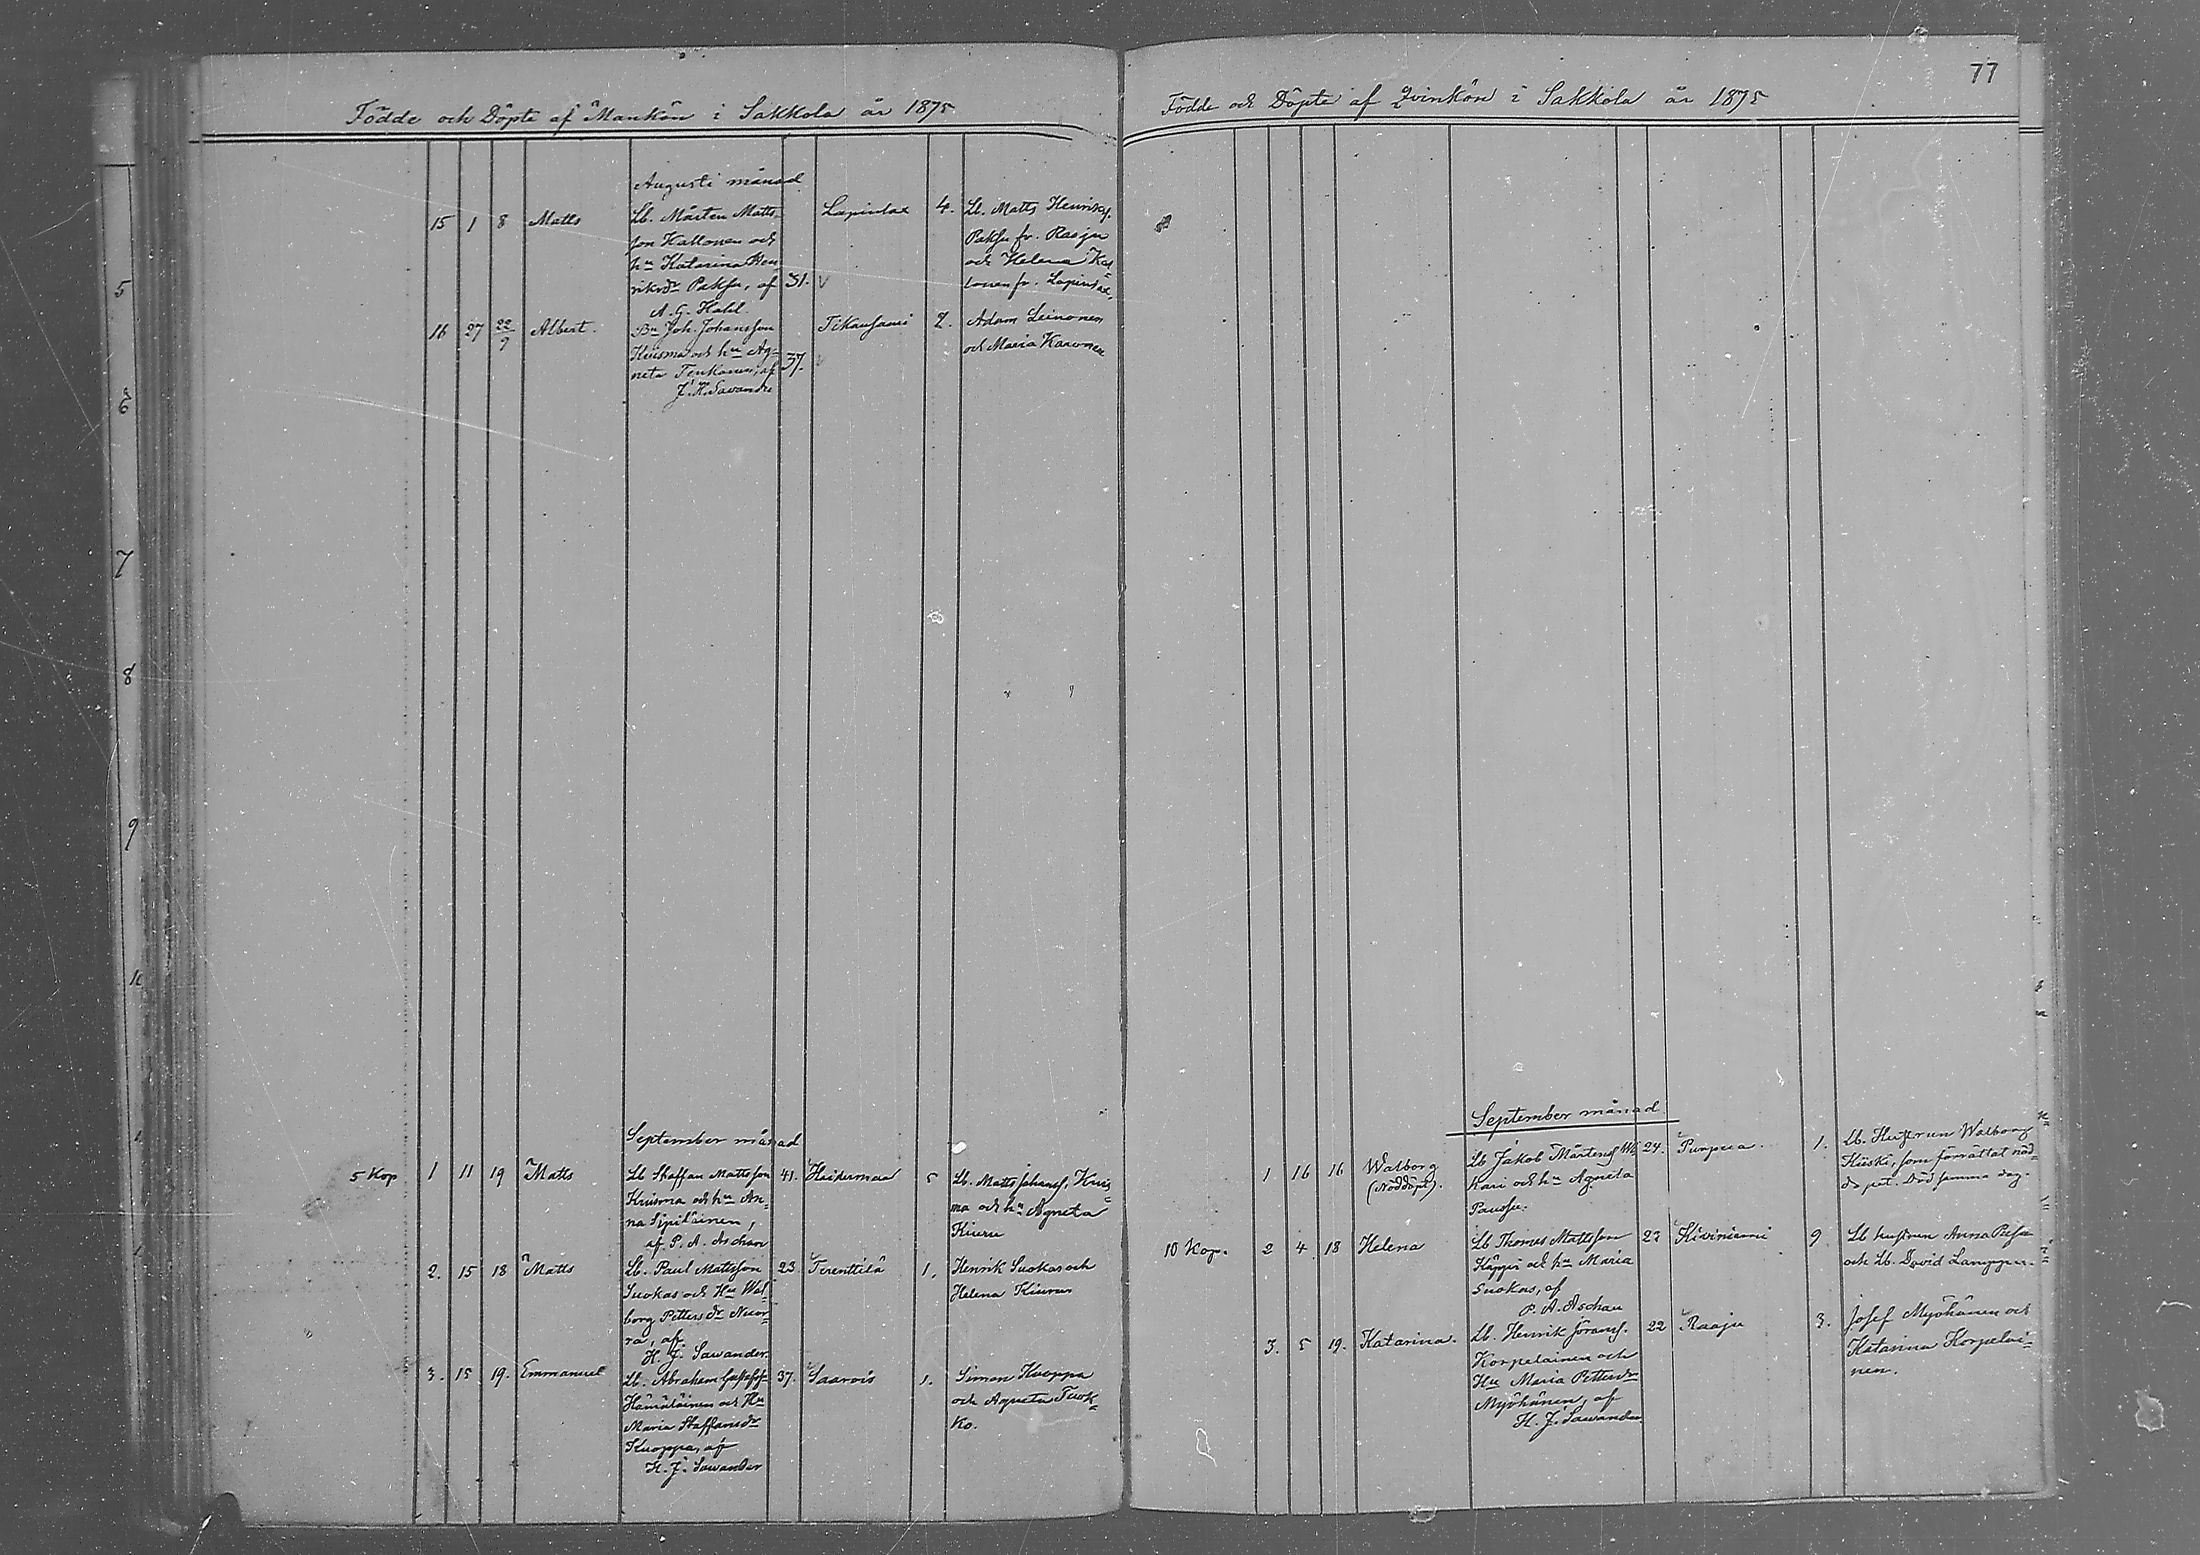 Födde och Döpte af Mankön i Sakkola år 1875
Augusti månad
15 1 8 Matts
Lb. Mårten Matts-
son Hallonen och
hu Katarina Hen
riksdr Paksu, af
A. G. Hahl.
31.
Lapinlax 4.
Lb. Matts Henriks.
Paksu fr. Raaju
och Helena
fr. Lapinlax,
16 27 22/9 Albert.
Bn Joh. Johansson
Kiisma och hu Ag-
neta Tenkanen, af
J. H. Savander
37.
Tikansaari 2.
Adam Leinonen
och Maria Kaaronen
September månad
5 Kop 1 11 19 Matts
Lb Staffan Mattsson
Kruisma och hu An-
na Sipiläinen,
af P. A. Aschan
41. Haitermaa 5
Lb. Matts Johanss. Kruis
ma och hu Agneta
Kiuru
2. 15 18 Matts
Lb. Paul Mattsson
Suokas och Hu Wal-
borg Pettersdr Nuo-
ra, af
H. J. Sawander
23 Terenttilä 1.
Henrik Suokas och
Helena Kiuru
3. 15 19. Emmanuel
Lb. Abraham
Hämäläinen och Hu
Maria Staffansdr
Kuoppa, af
H. J. Sawander
37. Saarois 1.
Simon Kuoppa
och Agneta Tuok-
ko.
77
Födde och Döpte af Qvinkön i Sakkola år 1875
September månad
1 16 16 Walborg
(Nöddöpt).
Lb Jakob Mårtenss
Kari och hu Agneta
Paussu.
24. Purpua. 1.
Lb. Hustrun Walborg
Kiiski, som förrättat nöd-
dopet. Död samma dag.
10 Kop. 2 4 18 Helena
Lb Thomas Mattsson
Käppi och hu Maria
Suokas, af
P. A. Aschan
27 Kiviniemi 9
Lb hustrun Anna
och Lb. David
3. 5 19. Katarina.
Lb. Henrik Göranss.
Korpelainen och
Hu Maria Pettersdr
Myöhänen, af
H. J. Sawander
22 Raaju 3.
Josef Myöhänen och
Katarina Korpelai-
nen.
5
6
7
8
9